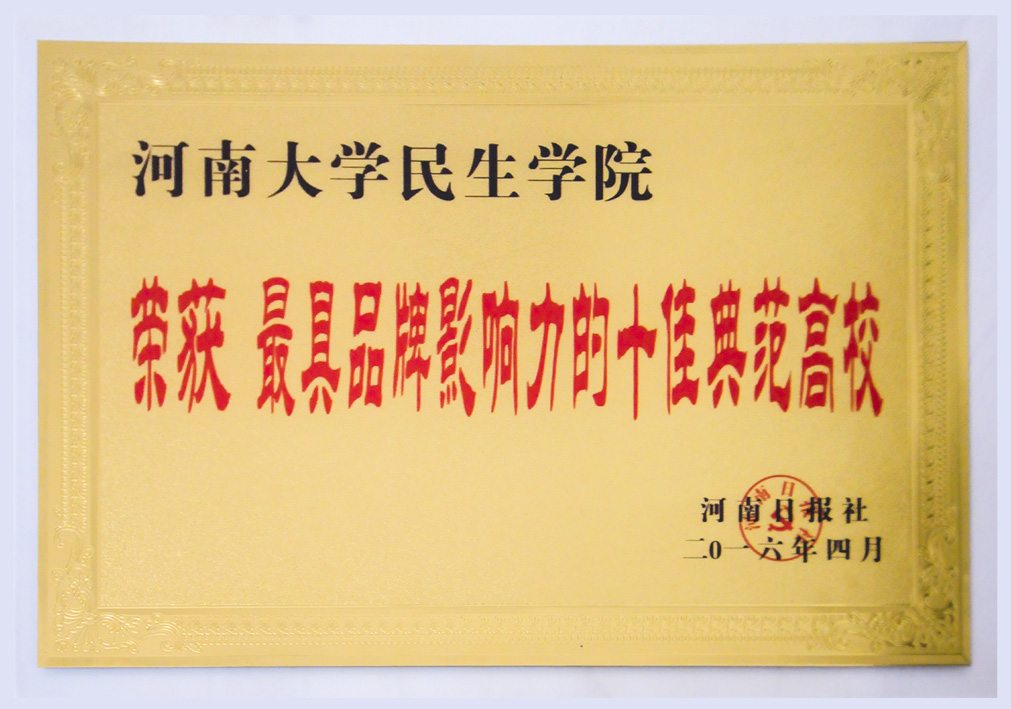 河南大学民生学院
荣获 最具品牌影响力的十佳典范高校
河南日报社
二0一六年四月